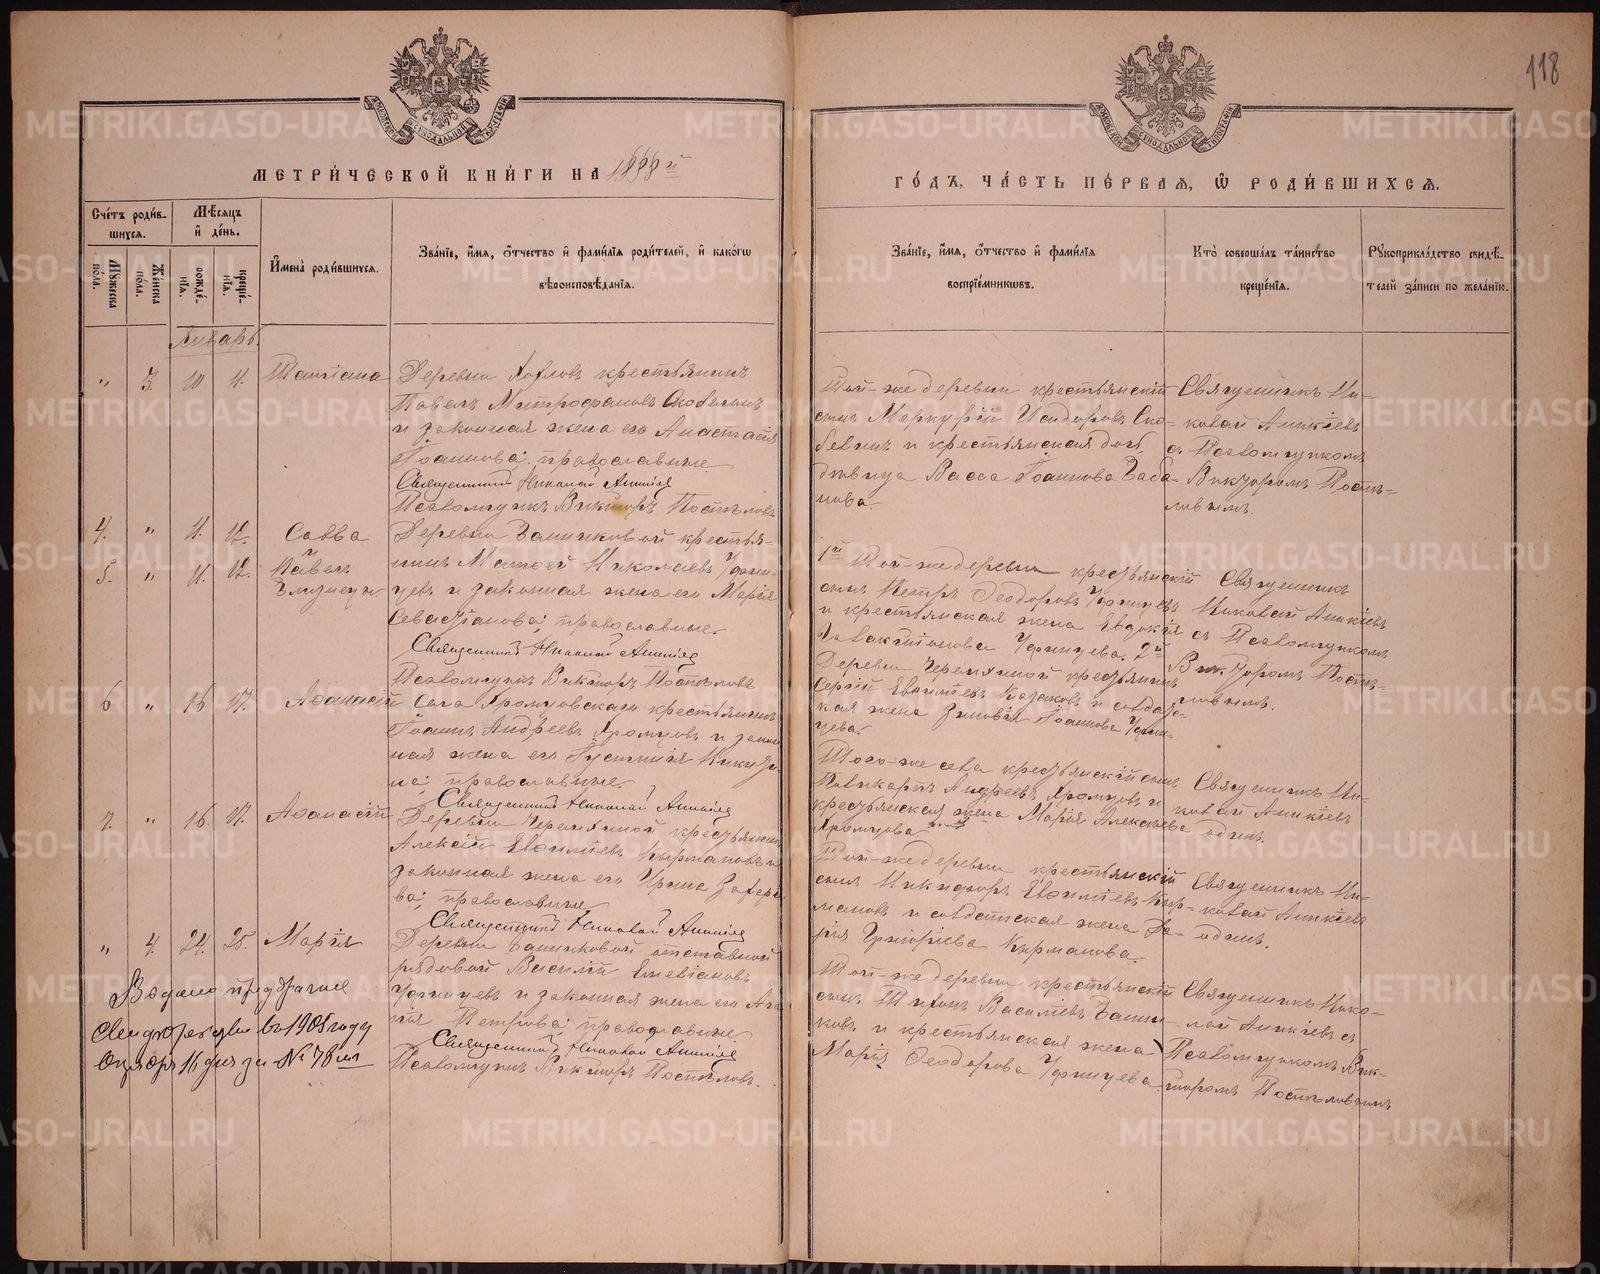 118
МЕТРИ́ЧЕСКОЙ КНИ́ГИ НА 1888й
ГО́ДЪ, ЧА́СТЬ ПЕ́РВАЯ, Ѿ РОДИ́ВШИХСЯ.
Сче́тъ роди́в-
шихся.
Му́жеска по́ла.
Же́нска по́ла.
Мѣ́сяцъ
и де́нь.
рожде́-
нія.
креще́-
нія.
Имена̀ роди́вшихся.
Зва́ніе, имя, о́тчество и фами́лія роди́телей, и како́гѡ
вѣроисповѣ́данія.
Зва́ніе, имя, о́тчество и фами́лія
воспріе́мникѡвъ.
Кто̀ соверша́лъ та́инство
креще́нія.
Рукоприкла́дство свидѣ́-
телей за́писи по жела́нію.
Январь.
" 3. 10 11. Татіана
Деревни крестьянинъ
Павелъ Митрофановъ Скобелинъ
и законная жена его Анастасія
Іоаннова; православные.
Священникъ Николай Аникіевъ
Псаломщикъ Викторъ Постѣловъ
Той-же деревни крестьянскій
сынъ Меркурій Исидоровъ Ско-
белинъ и крестьянская дочь
дѣвица Васса Іоаннова
нова.
Священникъ Ни-
колай Аникіевъ
съ Псаломщикомъ
Викторомъ Постѣ-
ловымъ.
4. " 11. 12. Савва
5. " 11. 12. и Павелъ
Близнецы
Деревни крестья-
нинъ Николаевъ Уфин-
цевъ и законная жена его Марія
Севастіанова; православные.
Священникъ Николай Аникіевъ
Псаломщикъ Викторъ Постѣловъ
1й Той-же деревни крестьянскій
сынъ Петръ Ѳеодоровъ Уфинцевъ
и крестьянская жена Евдокія
Уфинцева. 2й
Деревни Черемхиной крестьянинъ
Сергій Казаковъ и солдатс-
кая жена Зиновія Іоаннова Уфин-
цева.
Священникъ
Николай Аникіевъ
съ Псаломщикомъ
Викторомъ Постѣ-
ловымъ.
6 " 16 17. Аѳанасій
Села Хромцовскаго крестьянинъ
Іоаннъ Андреевъ Хромцовъ и закон-
ная жена его Іустинія Никити-
на; православные.
Священникъ Николай Аникіевъ
Того-же села крестьянскій сынъ
Поликарпъ Андреевъ Хромцовъ и
крестьянская жена Марія Алексѣева
Хромцова
Священникъ Ни-
колай Аникіевъ
одинъ.
7. " 16 17. Аѳанасій
Деревни Черемхиной крестьянинъ
Алексій Кырмановъ и
законная жена его Ирина
ва; православные.
Священникъ Николай Аникіевъ
Той-же деревни крестьянскій
сынъ Никифоръ Кыр-
мановъ и солдатская жена
рія Григоріева Кырманова.
Священникъ Ни-
колай Аникіевъ
одинъ.
" 4. 24. 25. Марія
Деревни отставной
рядовой Василій
Уфинцевъ и законная жена его
Петрова; православные.
Священникъ Николай Аникіевъ
Псаломщикъ Викторъ Постѣловъ.
Той-же деревни крестьянскій
сынъ Василіевъ
ковъ и крестьянская жена
Марія Ѳеодорова Уфинцева
Священникъ Нико-
лай Аникіевъ съ
Псаломщикомъ Вик-
торомъ Постѣловымъ
Выдано предбрачное
свидѣтельство въ 1905 году
Октября 16 дня за № 78мъ